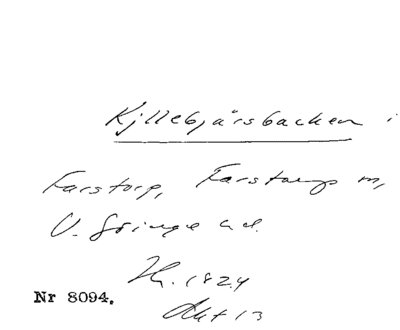 Kjillebjärsbacken i
Farstorp, Farstorps m,
V. Göinge hd.
1824
Nr 8094.
Akt 13